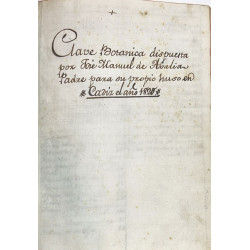 +
Clave Botanica dispuesta
por Jsé Manuel de
Padre para su propio huso en
Cadiz el año